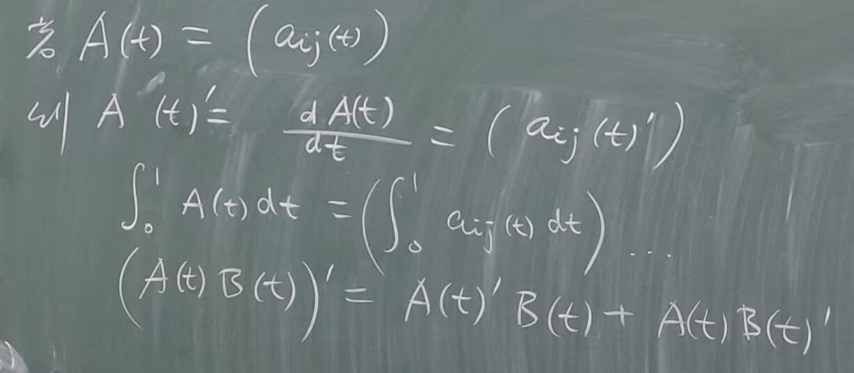 若 A(t) = (aij(t))
则 A(t)' = dA(t)/dt = (aij(t)')
∫₀¹ A(t)dt = (∫₀¹ aij(t) dt) ...
(A(t)B(t))' = A(t)'B(t) + A(t)B(t)'